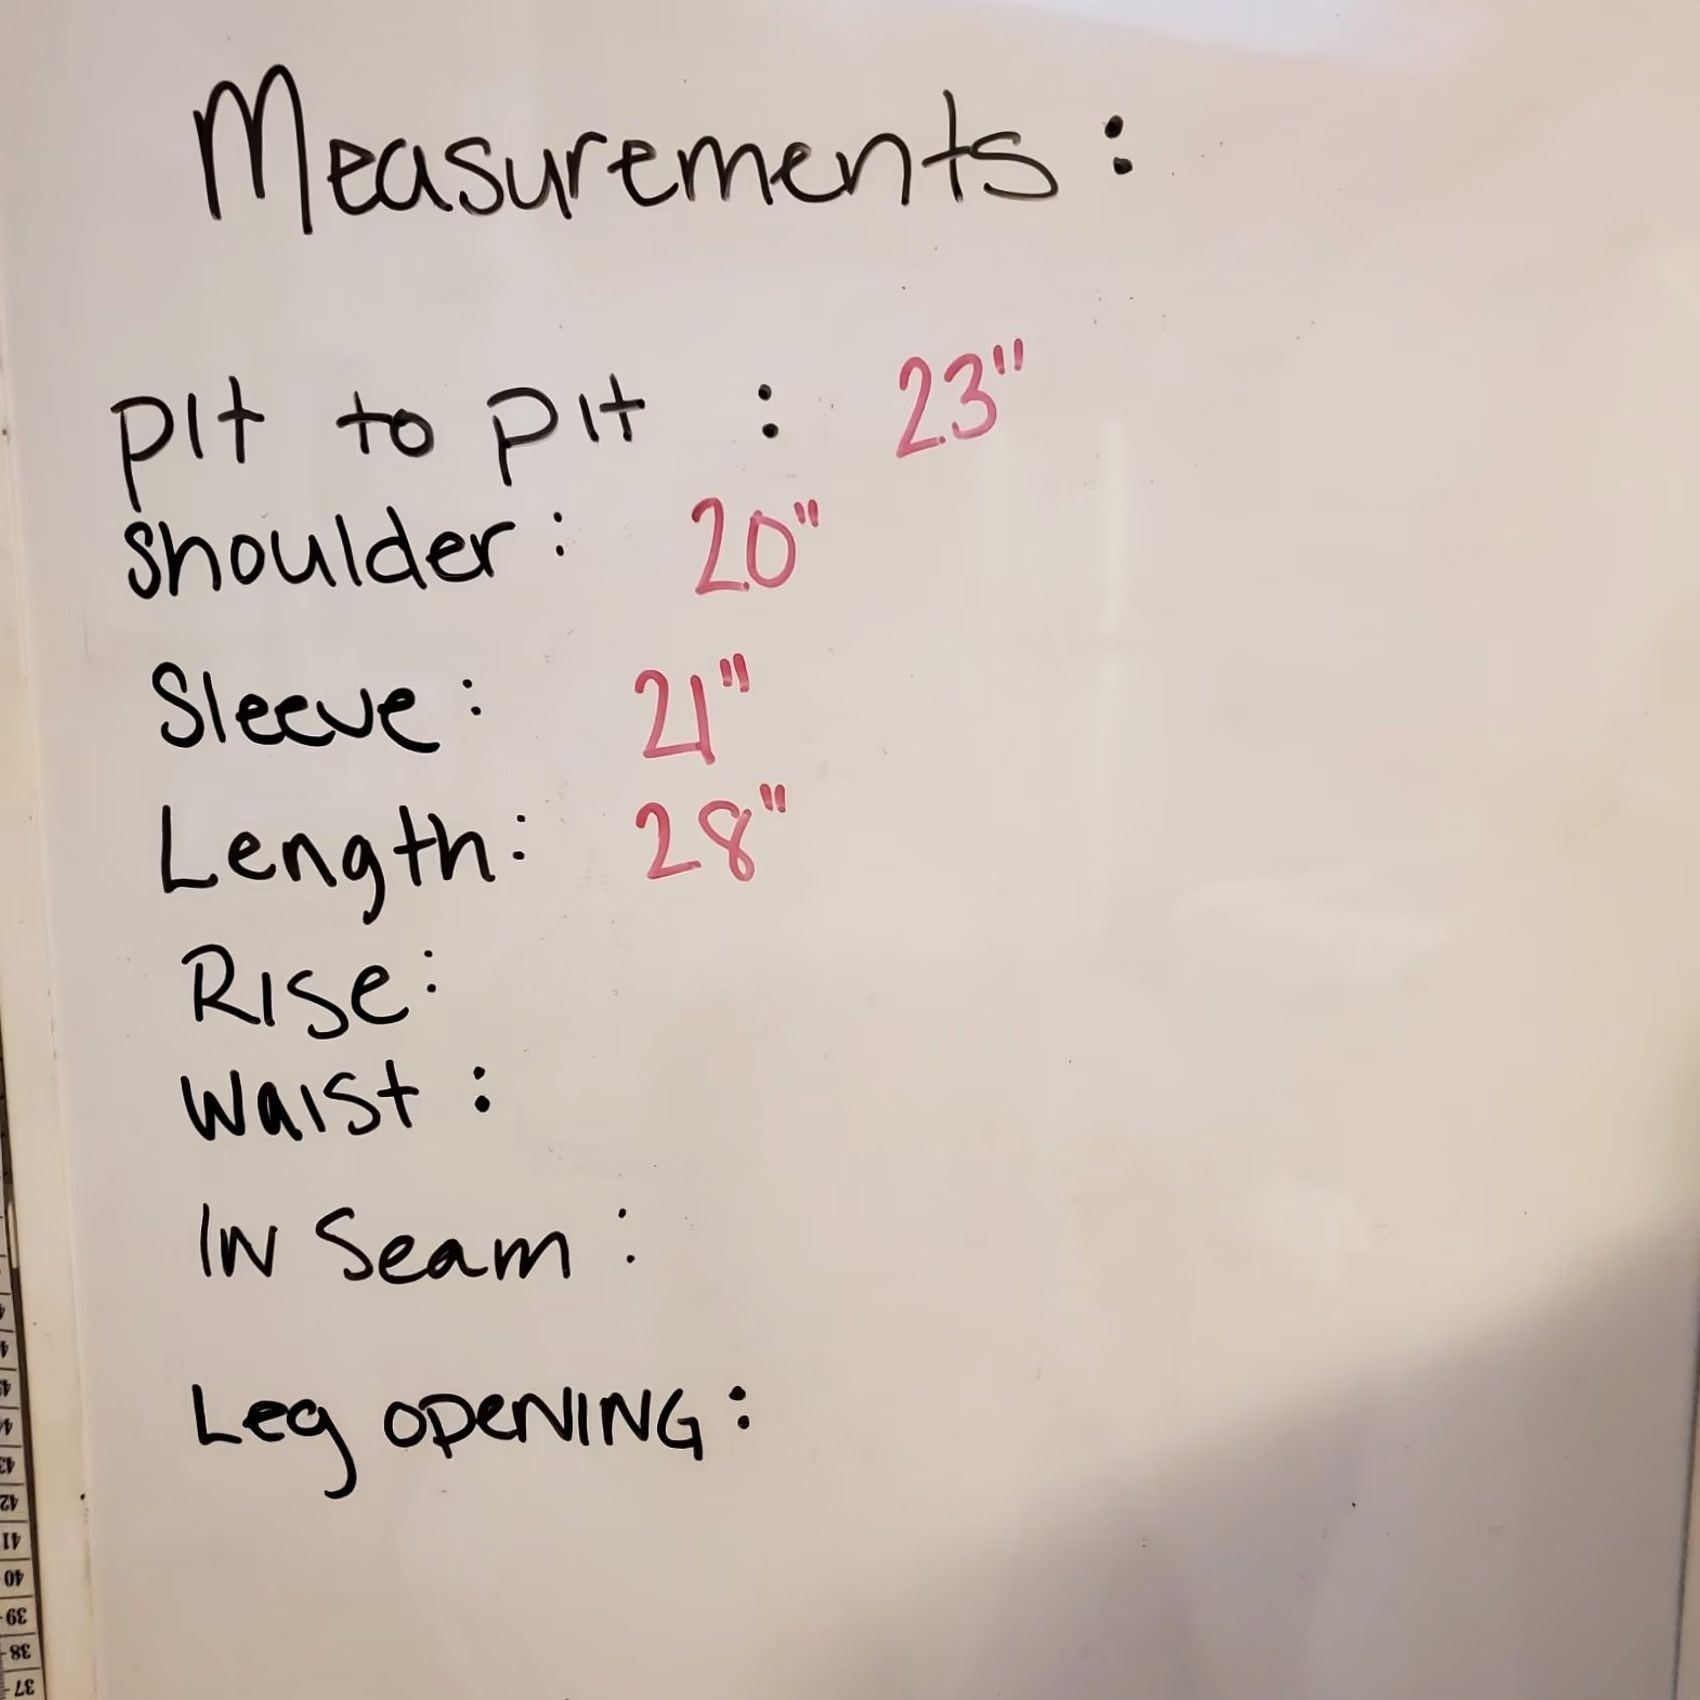 Measurements :
pit to pit : 23"
shoulder : 20"
Sleeve : 21"
Length : 28"
Rise :
Waist :
IN Seam :
Leg OPeNING :
42
41
40
39
38
37